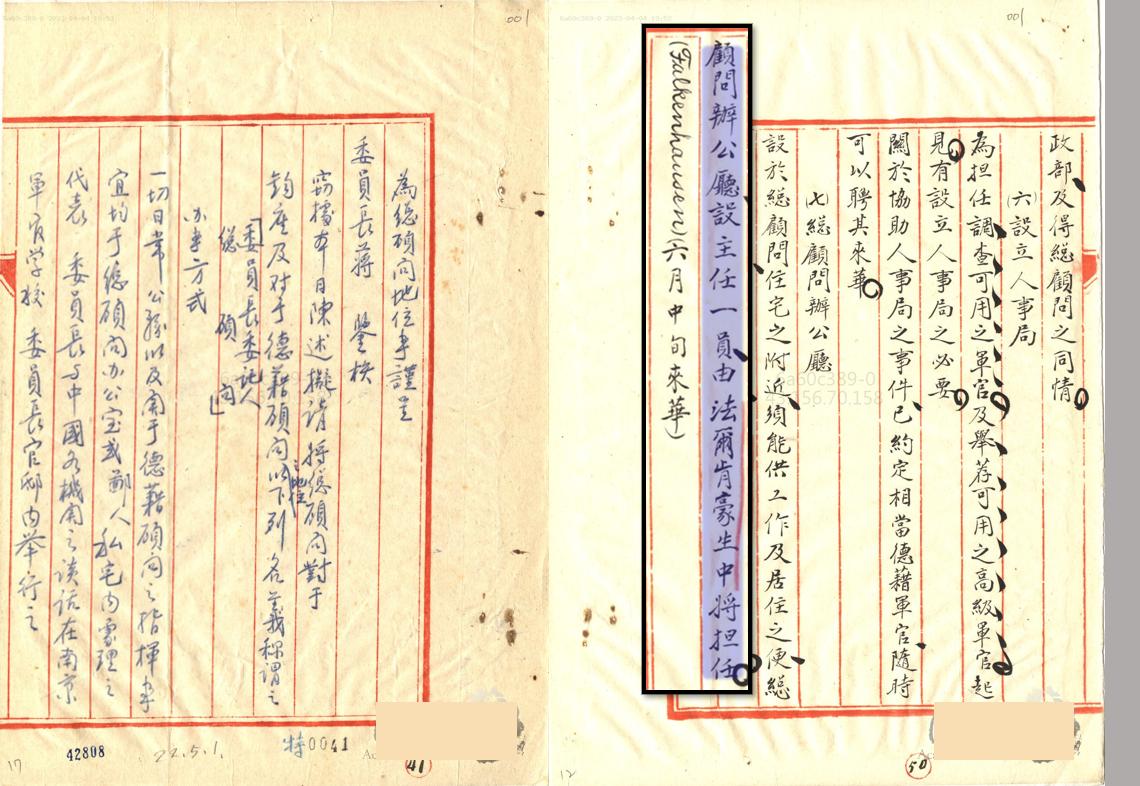 政部及得総顧問之同情
㈥設立人事局
為担任調查可用之軍官及舉荐可用之高級軍官起
見有設立人事局之必要
關於協助人事局之事件已約定相當德籍軍官隨時
可以聘其來華
㈦総顧問辦公廳
設於総顧問住宅之附近須能供工作及居住之便総
顧問辦公廳設主任一員由法爾肯豪生中將担任
(Falkenhausen)六月中旬來華)
50
12
001
為総顧問地位事謹呈
委員長蔣 鑒核
竊據本日陳述擬請將総顧問對于
鈞座及对于德籍顧問之地位以下列名義稱謂之
「委員長委託人
総顧問」
办事方式
一切日常公務以及関于德籍顧問之指揮事
宜均于総顧問办公室或鄙人私宅内處理之
代表 委員長与中國各機関之談話在南京
軍官学校 委員長官邸内举行之
42808
22.5.1.
特0041
41
17
001